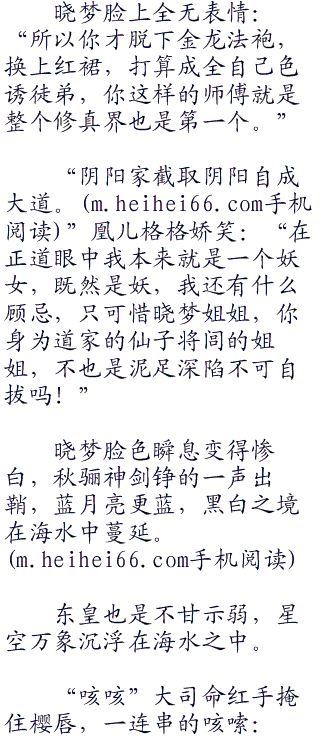 晓梦脸上全无表情：
“所以你才脱下金龙法袍，
换上红裙，打算成全自己色
诱徒弟，你这样的师傅就是
整个修真界也是第一个。”
“阴阳家截取阴阳自成
大道。(m.heihei66.com手机
阅读)”凰儿格格娇笑：“在
正道眼中我本来就是一个妖
女，既然是妖，我还有什么
顾忌，只可惜晓梦姐姐，你
身为道家的仙子将闾的姐
姐，不也是泥足深陷不可自
拔吗！”
晓梦脸色瞬息变得惨
白，秋骊神剑铮的一声出
鞘，蓝月亮更蓝，黑白之境
在海水中蔓延。
(m.heihei66.com手机阅读)
东皇也是不甘示弱，星
空万象沉浮在海水之中。
“咳咳”大司命红手掩
住樱唇，一连串的咳嗦：